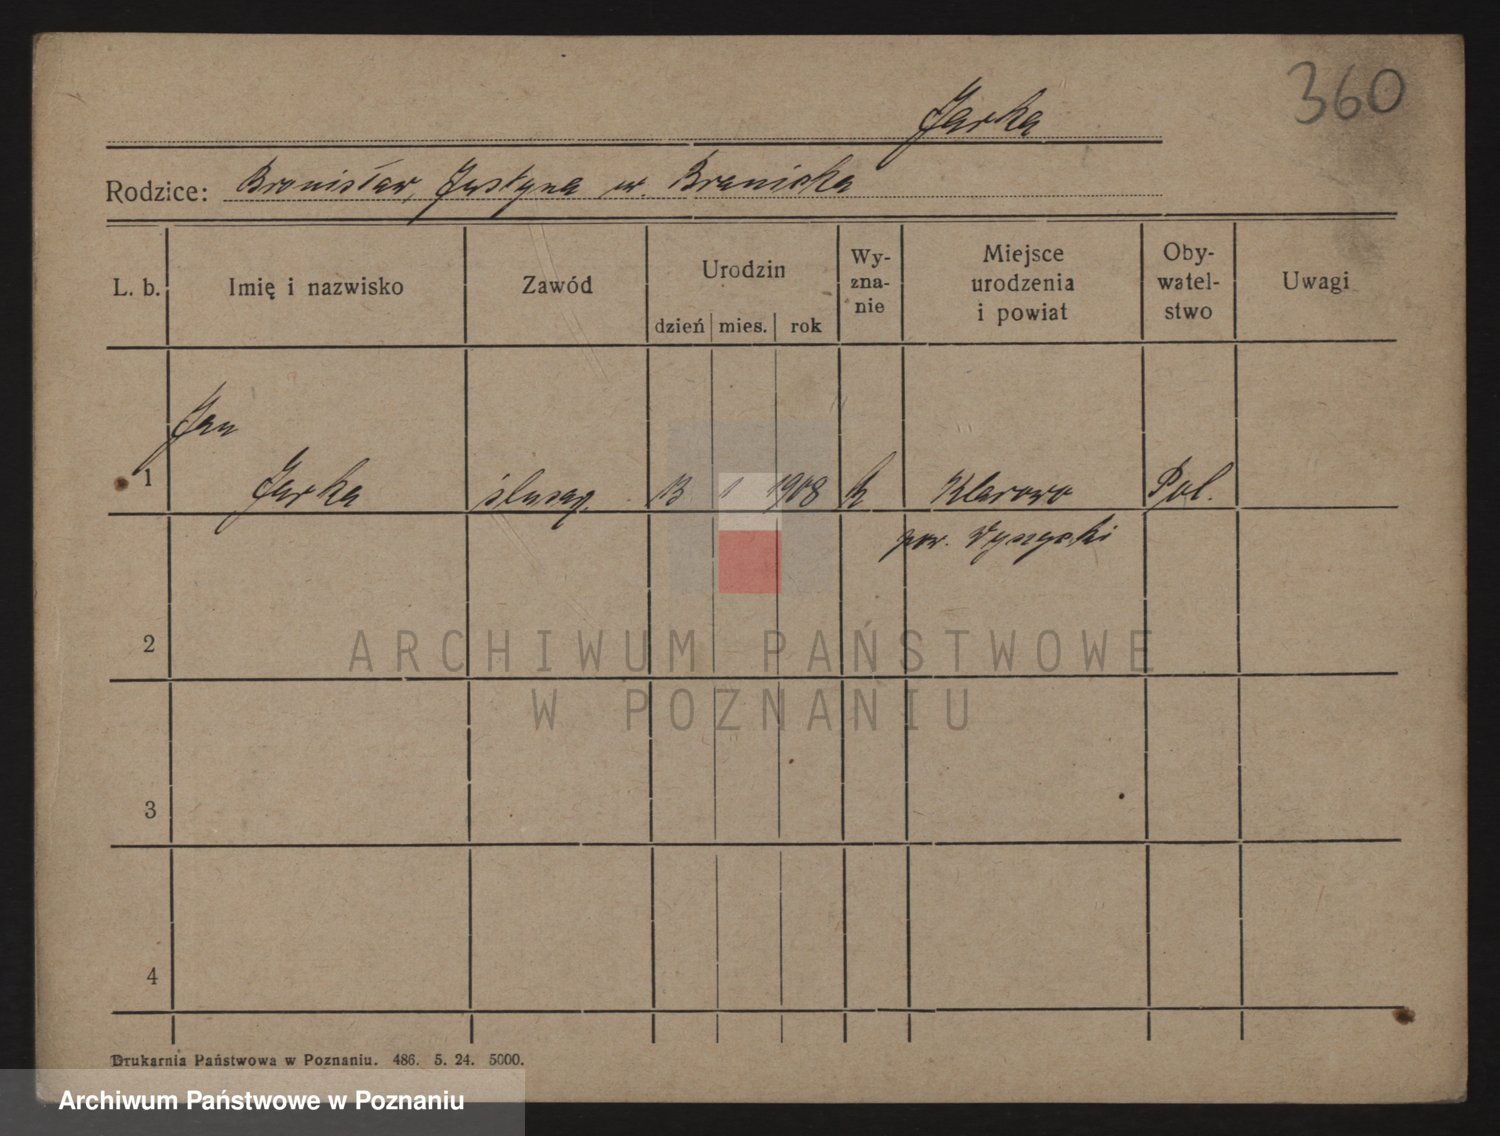 360
Jarka
Rodzice: Bronisław, Justyna w. Branicka
L. b. Imię i nazwisko Zawód Urodzin dzień mies. rok Wy-zna-nie Miejsce urodzenia i powiat Oby-watel-stwo Uwagi
Jan
1 Jarka ślusarz 13 1 1908 k Klarowo Pol.
pow.
2
3
4
ARCHIWUM PAŃSTWOWE
W POZNANIU
Drukarnia Państwowa w Poznaniu. 486. 5. 24. 5000.
Archiwum Państwowe w Poznaniu